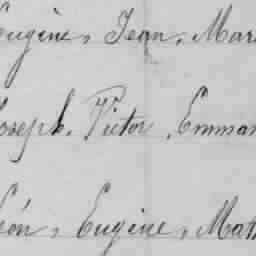 Eugène, Jean, Mar
Joseph, Victor, Emman
Léon, Eugène, Mat